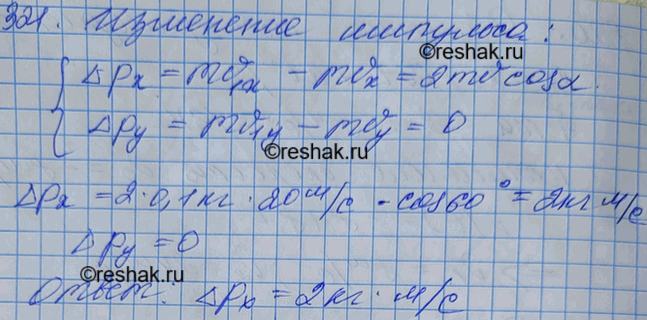 321. Изменение импульса:
©reshak.ru
Δpx = mv1x - mvx = 2mv cosα.
Δpy = mv1y - mvy = 0
©reshak.ru
Δpx = 2·0,1кг·20м/с·cos60° = 2кг м/с
Δpy = 0
©reshak.ru
Ответ: Δpx = 2кг·м/с